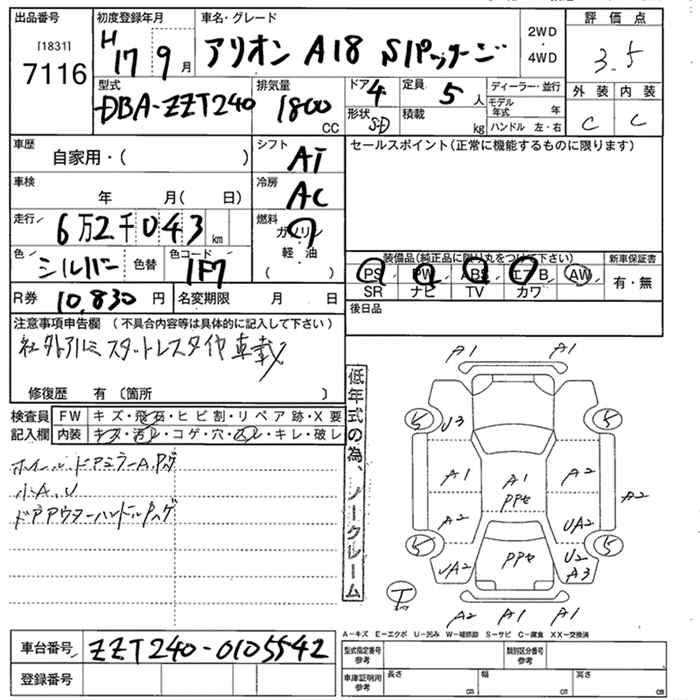 出品番号 初度登録年月 車名・グレード 2WD ・ 4WD 評価点
[1831]
7116 H17 9月 アリオン A18 Sパッケージ 3.5
型式 排気量 ドア 定員 ディーラー・並行 外装 内装
DBA-ZZT240 1800 CC 4 5人 モデル年式 年
形状 SD 積載 kg ハンドル 左・右 C C
車歴 自家用・( ) シフト AT セールスポイント(正常に機能するものに限ります)
車検 年 月( 日) 冷房 AC
走行 6万2千043 km 燃料 ガソリン ・ 軽油 ( )
色 シルバー 色替 色コード 1F7
装備品(純正品に限り丸をつけて下さい) 新車保証書
PS PW ABS エアB AW 有・無
SR ナビ TV カワ
R券 10,830円 名変期限 月 日 後日品
注意事項申告欄 (不具合内容等は具体的に記入して下さい)
社外アルミスタットレスタイヤ車載
修復歴 有 〔箇所 〕
検査員記入欄 FW キズ・飛石・ヒビ割・リペア跡・X要
内装 キズ・汚れ・コゲ・穴・スレ・キレ・破レ
ホイール、ドアミラーA、ハゲ
小A、U
ドアアウターハンドルハゲ
低年式の為、ノークレーム
A1 A1
5 U3 5
A1 A1 A2
PPセ A2
A2 UA2
5 PPセ 5
UA2 U2
A3
T
A2 A1 A1
A-キズ E-エクボ U-凹み W-補修跡 S-サビ C-腐食 XX-交換済
車台番号 ZZT240-0105542 型式指定番号参考 類別区分番号参考
登録番号 車庫証明用参考 長さ cm 幅 cm 高さ cm